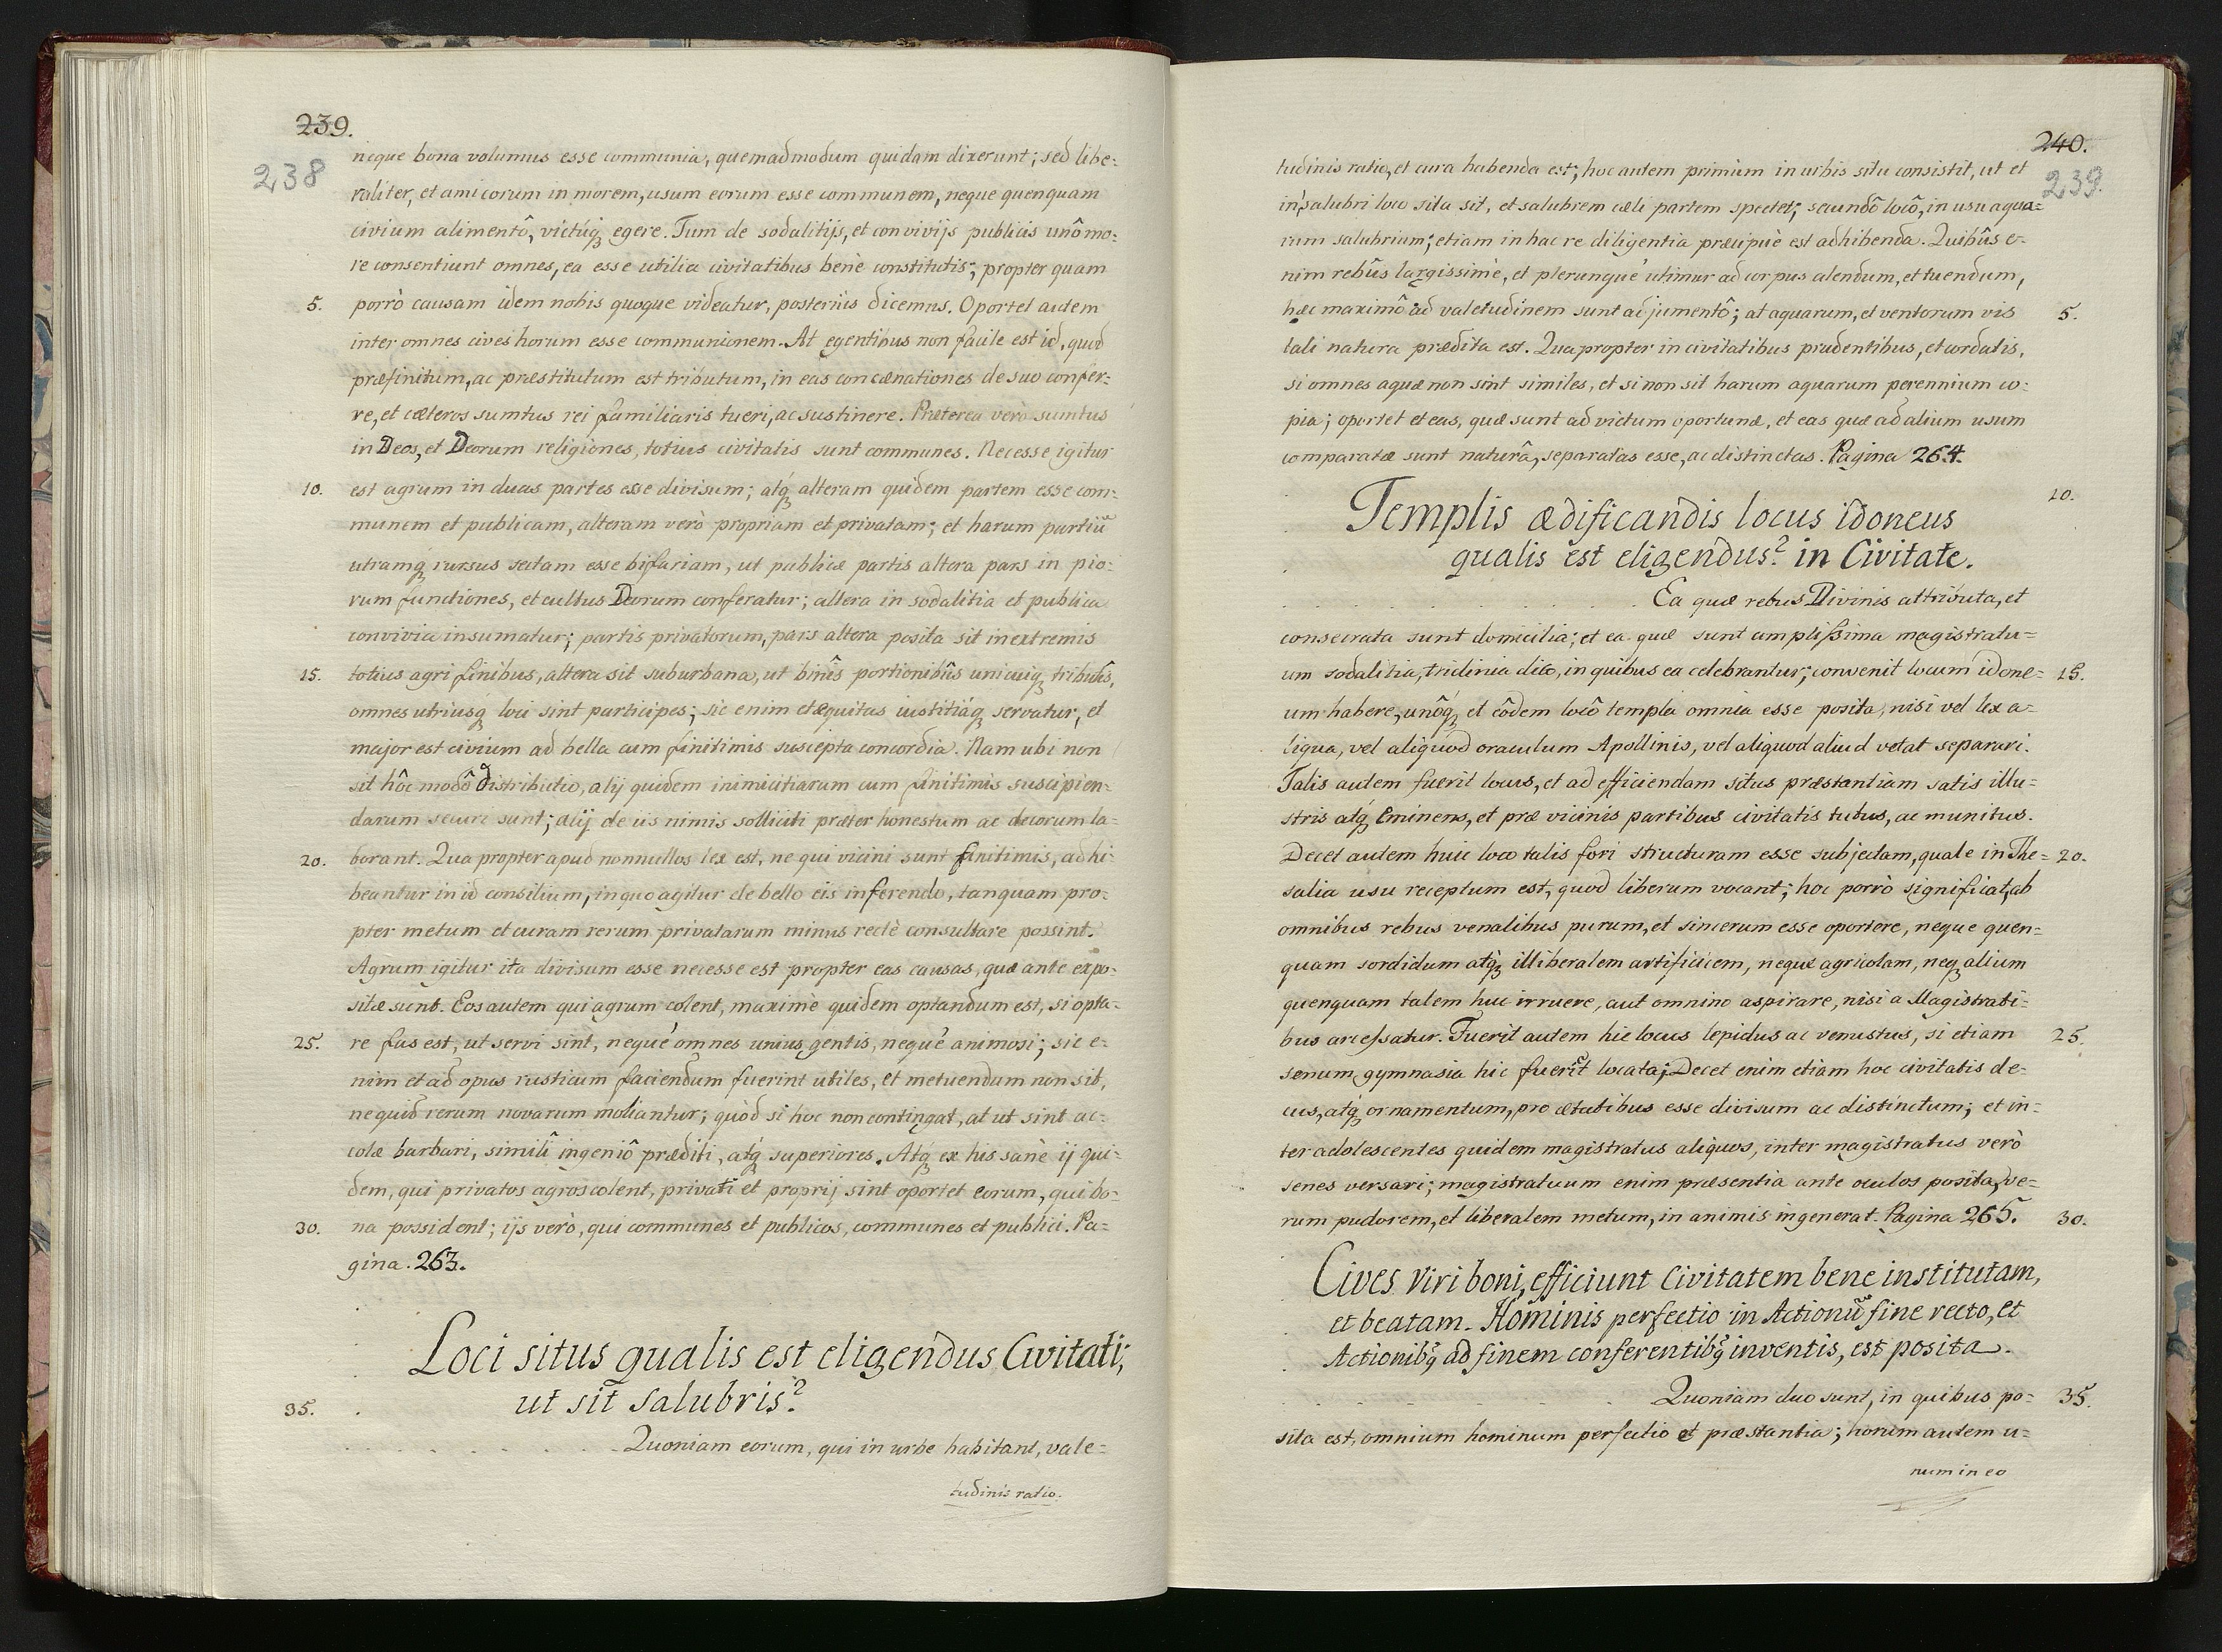 239.
238
neque bona volumus esse communia, quemadmodum quidam dixerunt; sed libe=
raliter, et amicorum in morem, usum eorum esse communem, neque quenquam
civium alimentô, victúq₃ egere. Tum de sodalitijs, et convivijs publicis unô mo=
re consentiunt omnes, ea esse utilia civitatibus benè constitutis; propter quam
5. porrò causam idem nobis quoque videatur, posteriùs dicemus. Oportet autem
inter omnes cives horum esse communionem. At egentibus non facile est id, quod
præfinitum, ac præstitutum est tributum, in eas concænationes de suo confer=
re, et cæteros sumtus rei familiaris tueri, ac sustinere. Præterea verò sumtus
in Deos, et Deorum religiones, totius civitatis sunt communes. Necesse igitur
10. est agrum in duas partes esse divisum; atq́₃ alteram quidem partem esse com=
munem et publicam, alteram verò propriam et privatam; et harum partiū
utramq₃ rursus sectam esse bifariam, ut publicæ partis altera pars in pio=
rum functiones, et cultus Deorum conferatur; altera in sodalitia et publica
convivia insumatur; partis privatorum, pars altera posita sit in extremis
15. totius agri finibus, altera sit suburbana, ut binîs portionibûs unicuiq₃ tributîs,
omnes utriusq́₃ loci sint participes; sic enim et æquitas iustitiáq₃ servatur, et
major est civium ad bella cum finitimis suscepta concordia. Nam ubi non
sit hôc modô distributio, alij quidem inimicitiarum cum finitimis suscipien=
darum securi sunt; alij de iis nimis solliciti præter honestum ac decorum la=
20. borant. Quapropter apud nonnullos lex est, ne qui vicini sunt finitimis, adhi=
beantur in id consilium, in quo agitur de bello eis inferendo, tanquam pro=
pter metum et curam rerum privatarum minus rectè consultare possint.
Agrum igitur ita divisum esse necesse est propter eas causas, quæ ante expo=
sitæ sunt. Eos autem qui agrum colent, maximè quidem optandum est, si opta=
25. re fas est, ut servi sint, nequé omnes unius gentis, nequè animosi; sic e=
nim et ad opus rusticum faciendum fuerint utiles, et metuendum non sit,
nequid rerum novarum moliantur; quòd si hoc non contingat, at ut sint ac=
colæ barbari, similî ingeniô præditi, atq́₃ superiores. Atq́₃ ex his sanè ij qui=
dem, qui privatos agros colent, privati et proprij sint oportet eorum, qui bo=
30. na possident; ijs verò, qui communes et publicos, communes et publici. Pa=
gina. 263.
Loci situs qualis est eligendus Civitati;
35. ut sit salubris?
Quoniam eorum, qui in urbe habitant, vale=
tudinis ratio.
240.
239.
tudinis ratio, et cura habenda est; hoc autem primùm in urbis situ consistit, ut et
in salubri loco sita sit, et salubrem cæli partem spectet; secundô locô, in usu aqua=
rum salubrium; etiam in hac re diligentia præcipuè est adhibenda. Quibûs e=
nim rebûs largissimè, et plerunquè utimur ad corpus alendum, et tuendum,
hæc maximô ad valetudinem sunt adjumentô; at aquarum, et ventorum vis 5.
tali natura prædita est. Quapropter in civitatibus prudentibus, et cordatis,
si omnes aquæ non sint similes, et si non sit harum aquarum perennium co=
pia; oportet et eas, quæ sunt ad victum oportunæ, et eas quæ ad alium usum
comparatæ sunt naturâ, separatas esse, ac distinctas. Pagina 264.
10.
Templis ædificandis locus idoneus
qualis est eligendus? in Civitate.
Ea quæ rebus Divinis attributa, et
consecrata sunt domicilia; et ea quæ sunt amplissima magistratu=
um sodalitia, triclinia dico, in quibus ea celebrantur; convenit locum idone= 15.
um habere, unôq́₃ et eôdem locô templa omnia esse posita, nisi vel lex a=
liqua, vel aliquod oraculum Apollinis, vel aliquod aliud vetat separari.
Talis autem fuerit locus, et ad efficiendam situs præstantiam satis illu=
stris atq́₃ eminens, et præ vicinis partibus civitatis tutus, ac munitus.
Decet autem huic loco talis fori structuram esse subjectam, quale in The= 20.
salia usu receptum est, quod liberum vocant; hoc porrò significat, ab
omnibus rebus venalibus purum, et sincerum esse oportere, neque quen=
quam sordidum atq́₃ illiberalem artificiem, nequè agricolam, neq₃ alium
quenquam talem huc irruere, aut omnino aspirare, nisi a Magistrati=
bus arcessatur. Fuerit autem hic locus lepidus ac venustus, si etiam 25.
senum gymnasia hic fuerīt locata; Decet enim etiam hoc civitatis de=
cus, atq́₃ ornamentum, pro ætatibus esse divisum ac distinctum; et in=
ter adolescentes quidem magistratus aliquos, inter magistratus verò
senes versari; magistratuum enim præsentia ante oculos posita, ve=
rum pudorem, et liberalem metum, in animis ingenerat. Pagina 265. 30.
Cives Viri boni, efficiunt Civitatem bene institutam,
et beatam. Hominis perfectio in Actionū fine recto, et
Actionibq́₃ ad finem conferentibq́₃ inventis, est posita.
Quoniam duo sunt, in quibus po= 35.
sita est, omnium hominum perfectio et præstantia; horum autem u=
num in eo